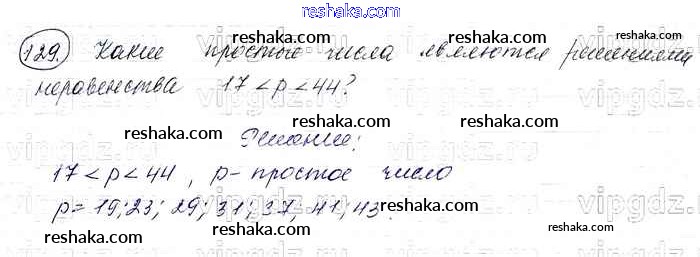 reshaka.com
129. Какие простые числа являются решениями
неравенства 17 < p < 44?
Решение:
17 < p < 44, p - простое число
p = 19; 23; 29; 31; 37; 41; 43.
reshaka.com
reshaka.com
reshaka.com
reshaka.com
reshaka.com
reshaka.com
reshaka.com
reshaka.com
reshaka.com
reshaka.com
reshaka.com
vipgdz.com
vipgdz.com